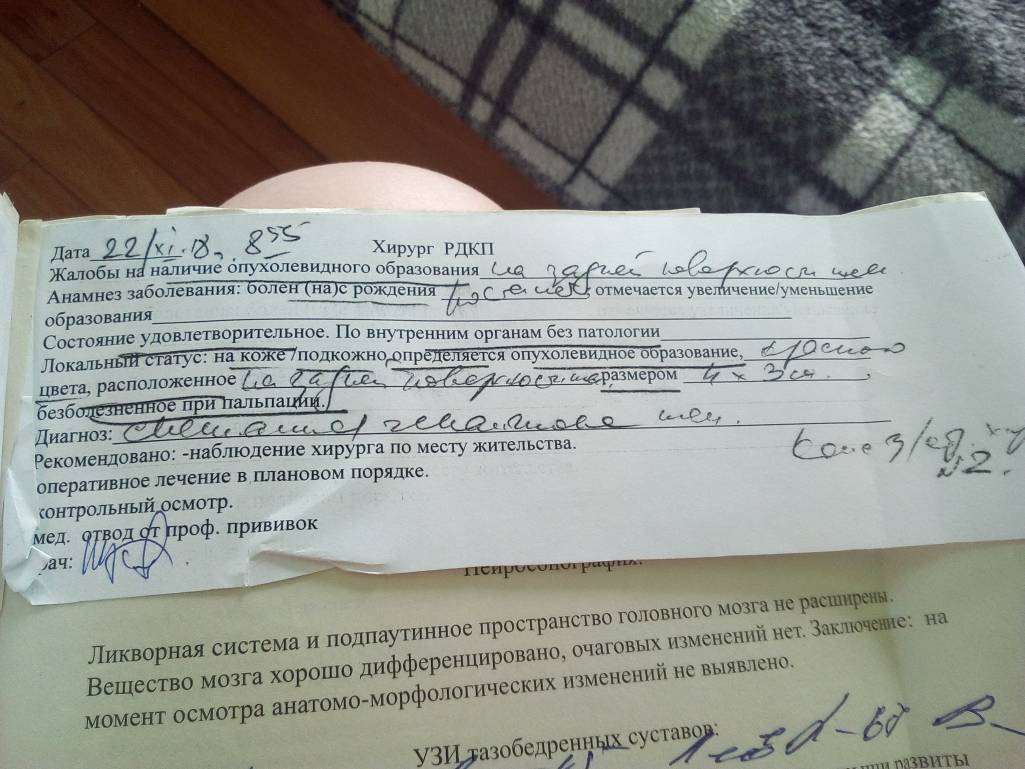 Дата 22/XI.18, 8 55 Хирург РДКП
Жалобы на наличие опухолевидного образования на задней поверхности шеи.
Анамнез заболевания: болен (на)с рождения отмечается увеличение/уменьшение
образования
Состояние удовлетворительное. По внутренним органам без патологии
Локальный статус: на коже /подкожно, определяется опухолевидное образование, красного
цвета, расположенное на задней поверхности шеи, размером 4 х 3 см.
безболезненное при пальпации.
Диагноз: гемангиома шеи.
Рекомендовано: -наблюдение хирурга по месту жительства.
оперативное лечение в плановом порядке.
контрольный осмотр.
мед. отвод от проф. прививок
рач:
N2.
Нейросонография:
Ликворная система и подпаутинное пространство головного мозга не расширены.
Вещество мозга хорошо дифференцировано, очаговых изменений нет. Заключение: на
момент осмотра анатомо-морфологических изменений не выявлено.
УЗИ тазобедренных суставов:
развиты